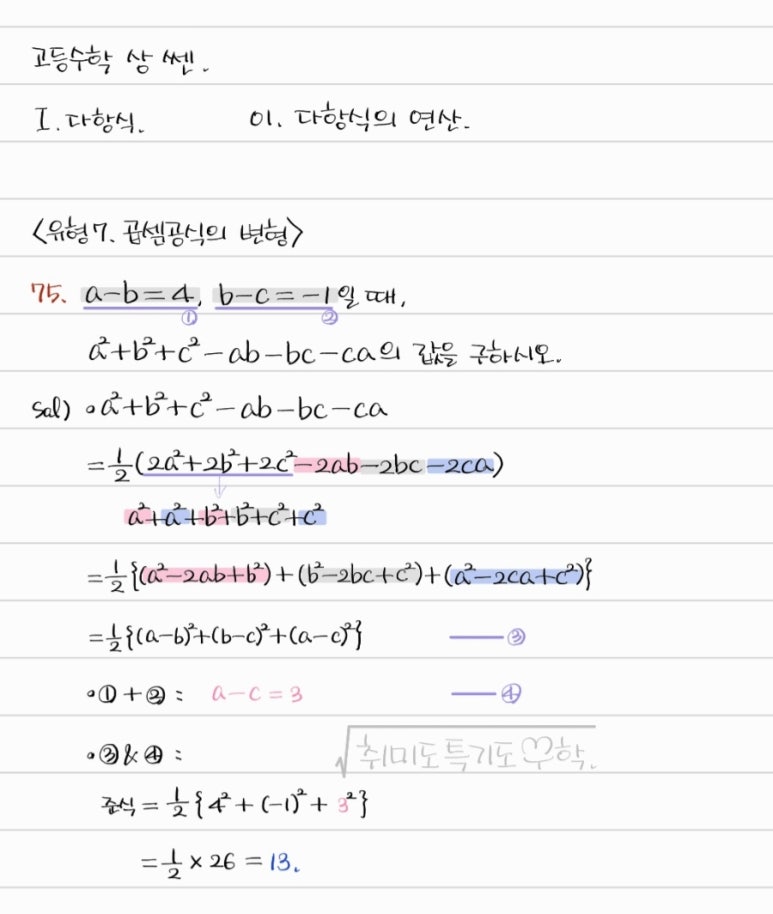 고등수학 상 쎈.
I. 다항식. 01. 다항식의 연산.
<유형7. 곱셈공식의 변형>
75. a-b=4, b-c=-1일 때,
① ②
a²+b²+c²-ab-bc-ca의 값을 구하시오.
sol) •a²+b²+c²-ab-bc-ca
=½(2a²+2b²+2c²-2ab-2bc-2ca)
↓
a²+a²+b²+b²+c²+c²
=½{(a²-2ab+b²)+(b²-2bc+c²)+(a²-2ca+c²)}
=½{(a-b)²+(b-c)²+(a-c)²} —③
•①+②: a-c=3 —④
•③&④:
√취미도특기도♡학.
준식=½{4²+(-1)²+3²}
=½×26=13.